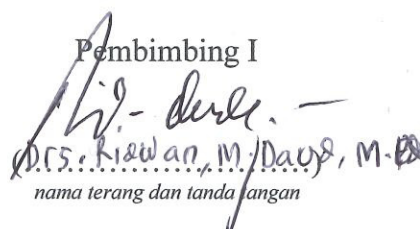 Pembimbing I
(Drs. Ridwan, M. Daud, M.
nama terang dan tanda tangan